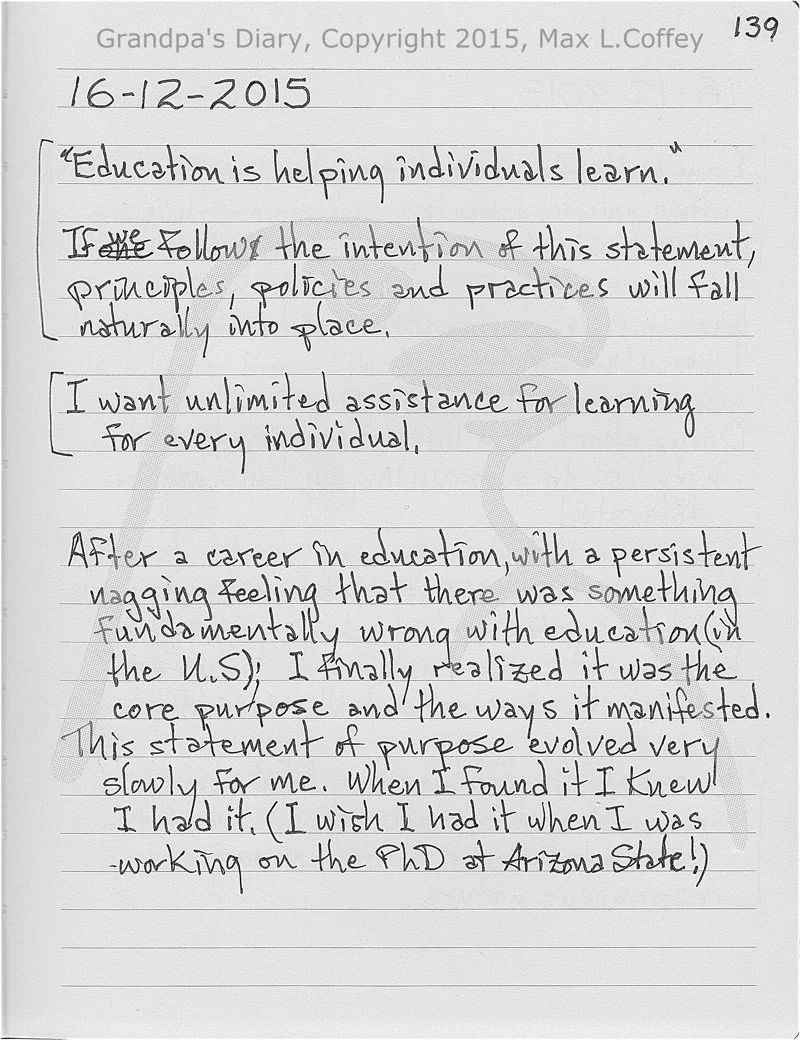 139
Grandpa's Diary, Copyright 2015, Max L.Coffey
16-12-2015
"Education is helping individuals learn."
If we follow the intention of this statement,
principles, policies and practices will fall
naturally into place.
I want unlimited assistance for learning
for every individual.
After a career in education, with a persistent
nagging feeling that there was something
fundamentally wrong with education (in
the U.S); I finally realized it was the
core purpose and the ways it manifested.
This statement of purpose evolved very
slowly for me. When I found it I knew
I had it. (I wish I had it when I was
working on the PhD at Arizona State!)